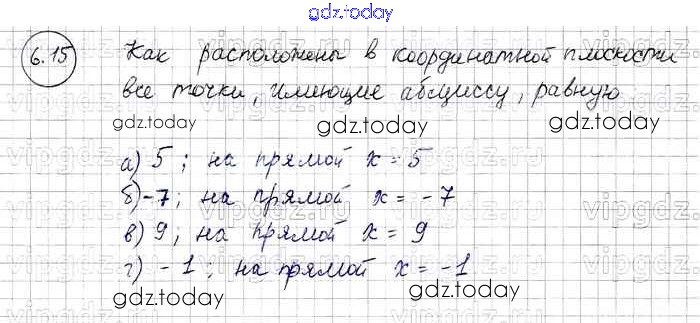 gdz.today
6.15 Как расположены в координатной плоскости
все точки, имеющие абсциссу, равную
gdz.today gdz.today gdz.today
а) 5; на прямой x = 5
б) -7; на прямой x = -7
в) 9; на прямой x = 9
г) -1; на прямой x = -1
gdz.today gdz.today